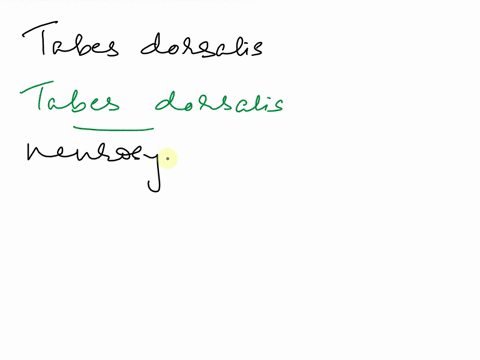 Tabes dorsalis
Tabes dorsalis
neurosy